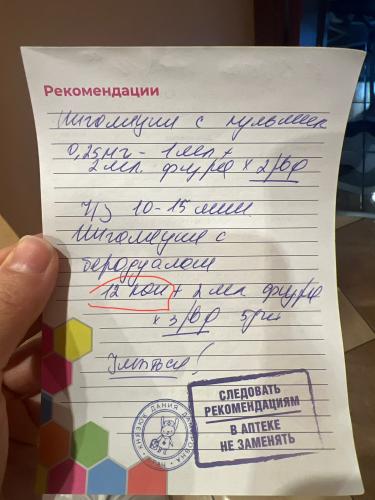 Рекомендации
Ингаляции с пульмик
0,25мг - 1 мл +
2 мл. физр-ра х 2/вд
Ч/з 10-15 мин
Ингаляции с
беродуалом
12 кап + 2 мл физр-ра
х 3/вд 5 дн
Умыться!
СЛЕДОВАТЬ
РЕКОМЕНДАЦИЯМ
В АПТЕКЕ
НЕ ЗАМЕНЯТЬ